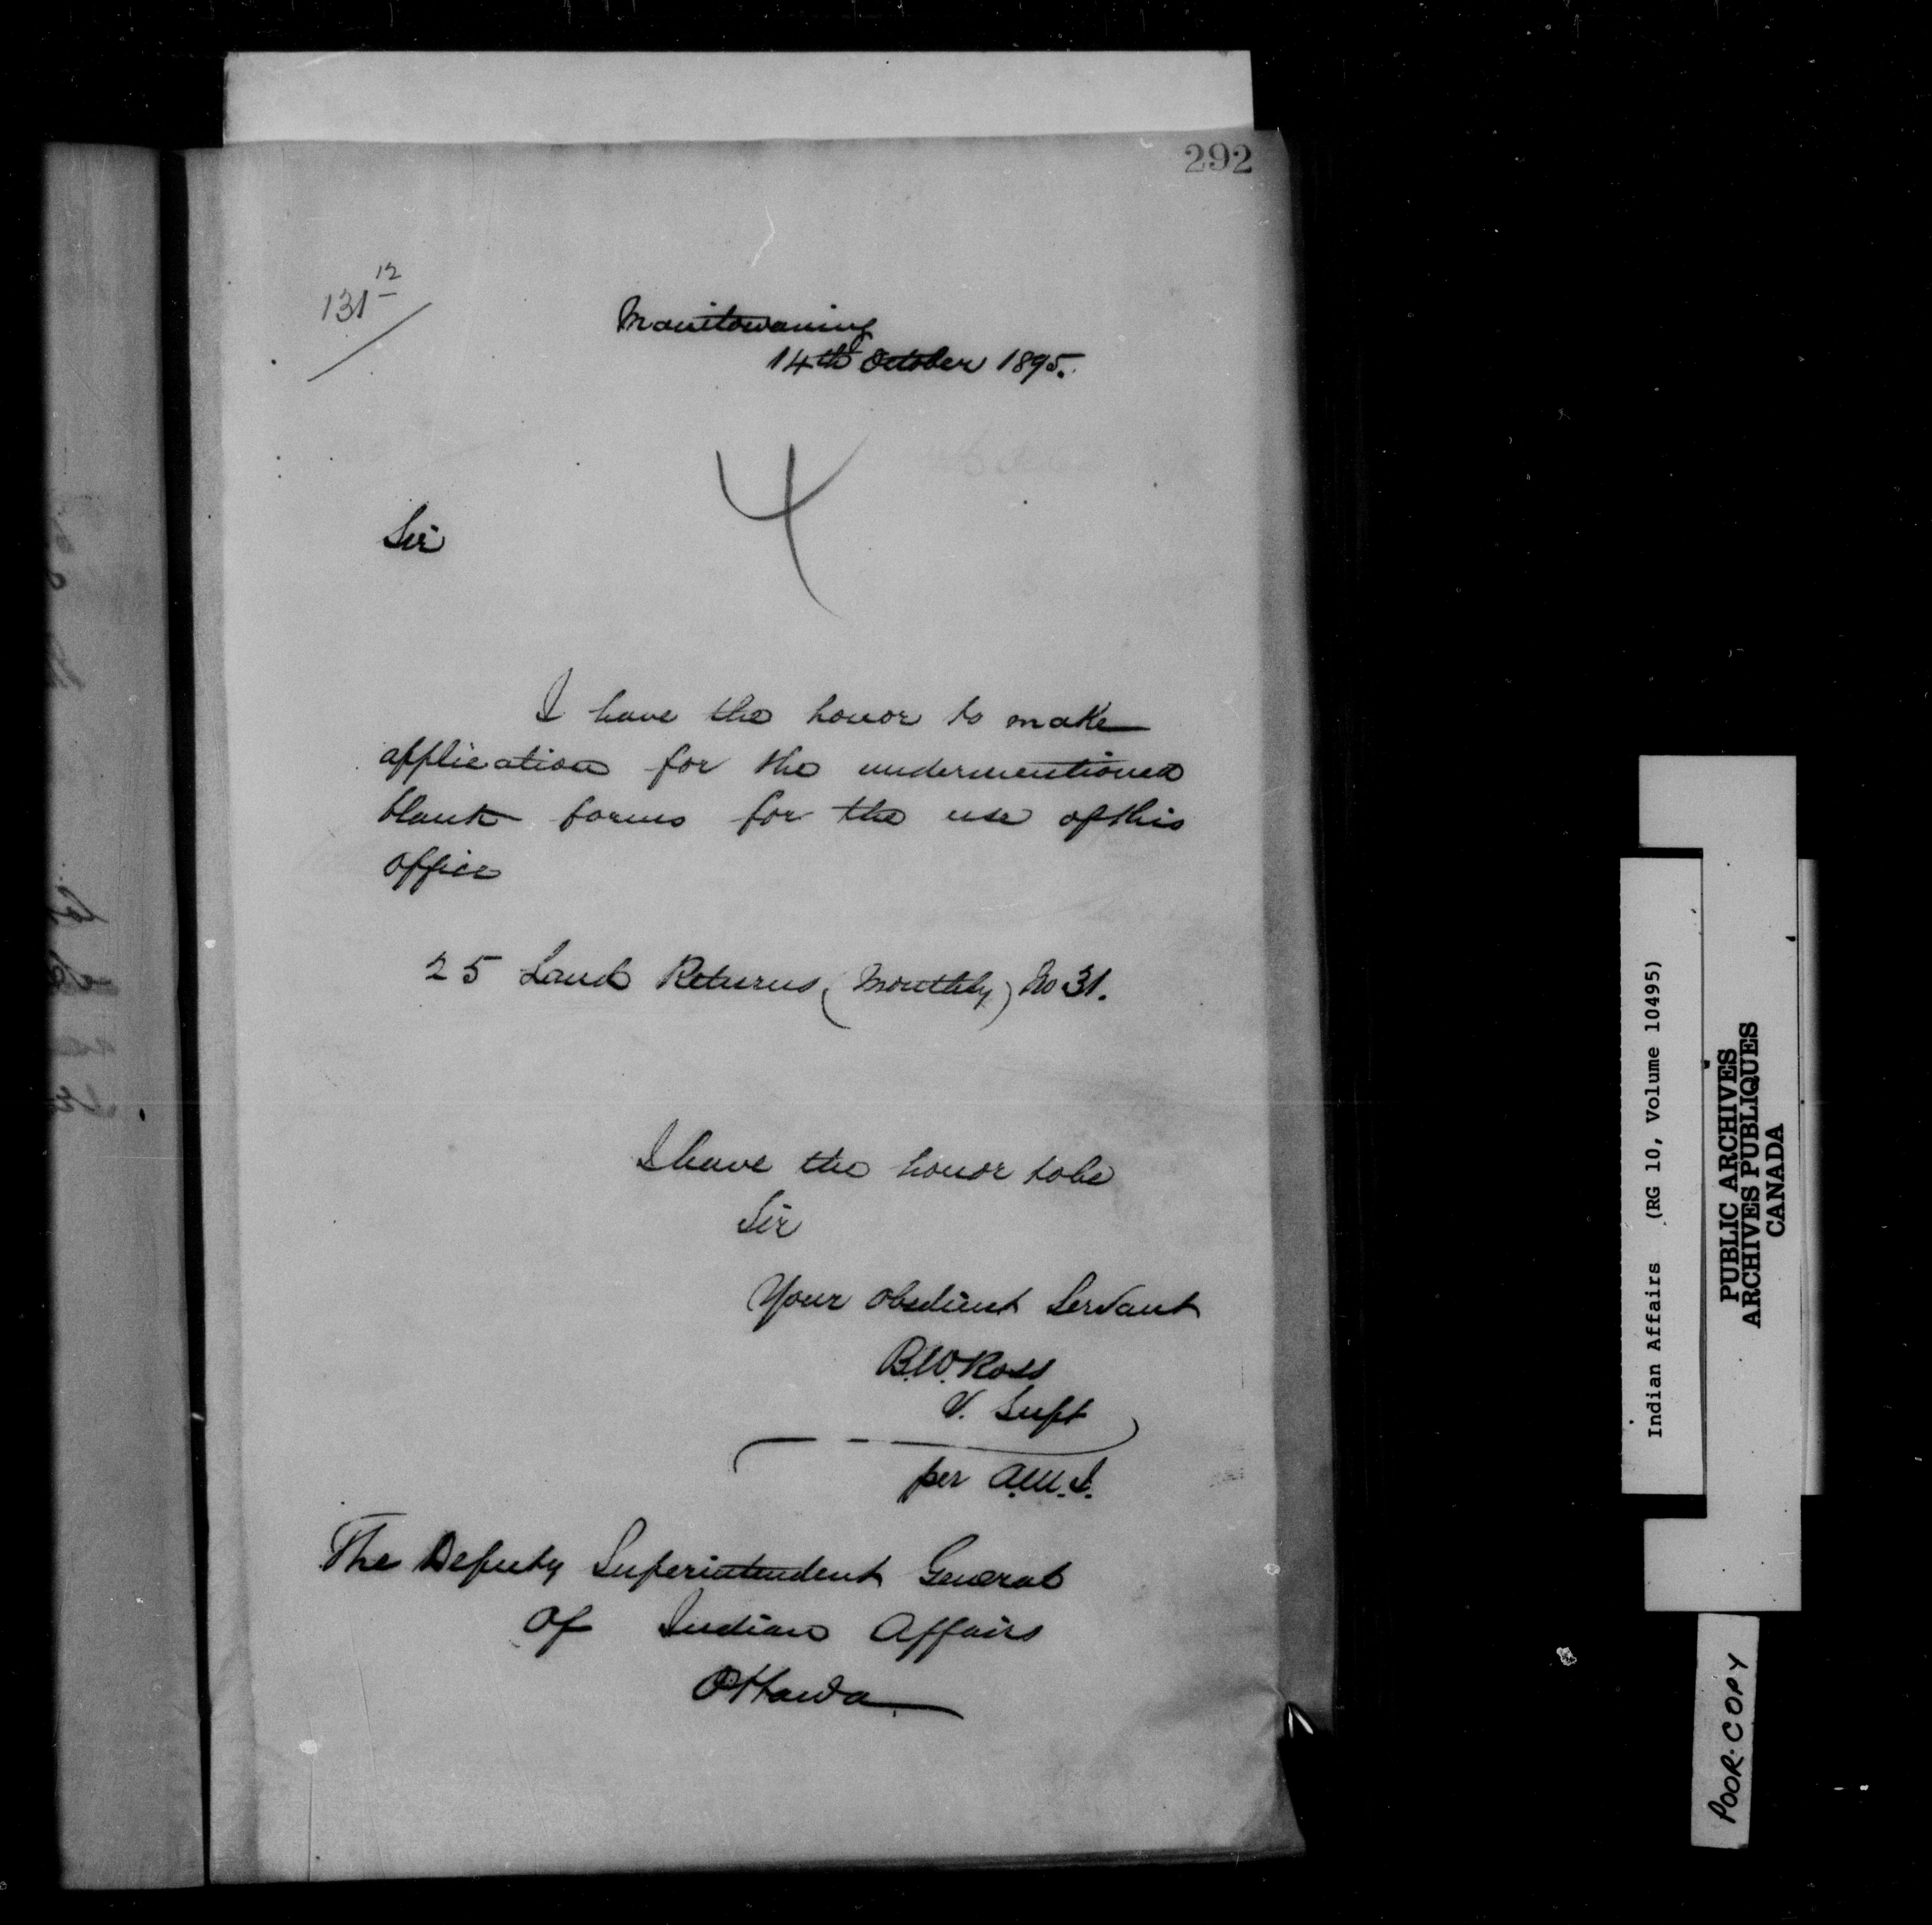 292
131 12
Manitowaning
14th October 1895.
4
Sir
I have the honor to make
application for the undermentioned
blank forms for the use of this
office
25 Land Returns (Monthly) No 31.
I have the honor to be
Sir
Your obedient Servant
B.W. Ross
V. Supt
per
The Deputy Superintendent General
of Indian Affairs
Ottawa
Indian Affairs (RG 10, Volume 10495)
PUBLIC ARCHIVES
ARCHIVES PUBLIQUES
CANADA
POOR COPY